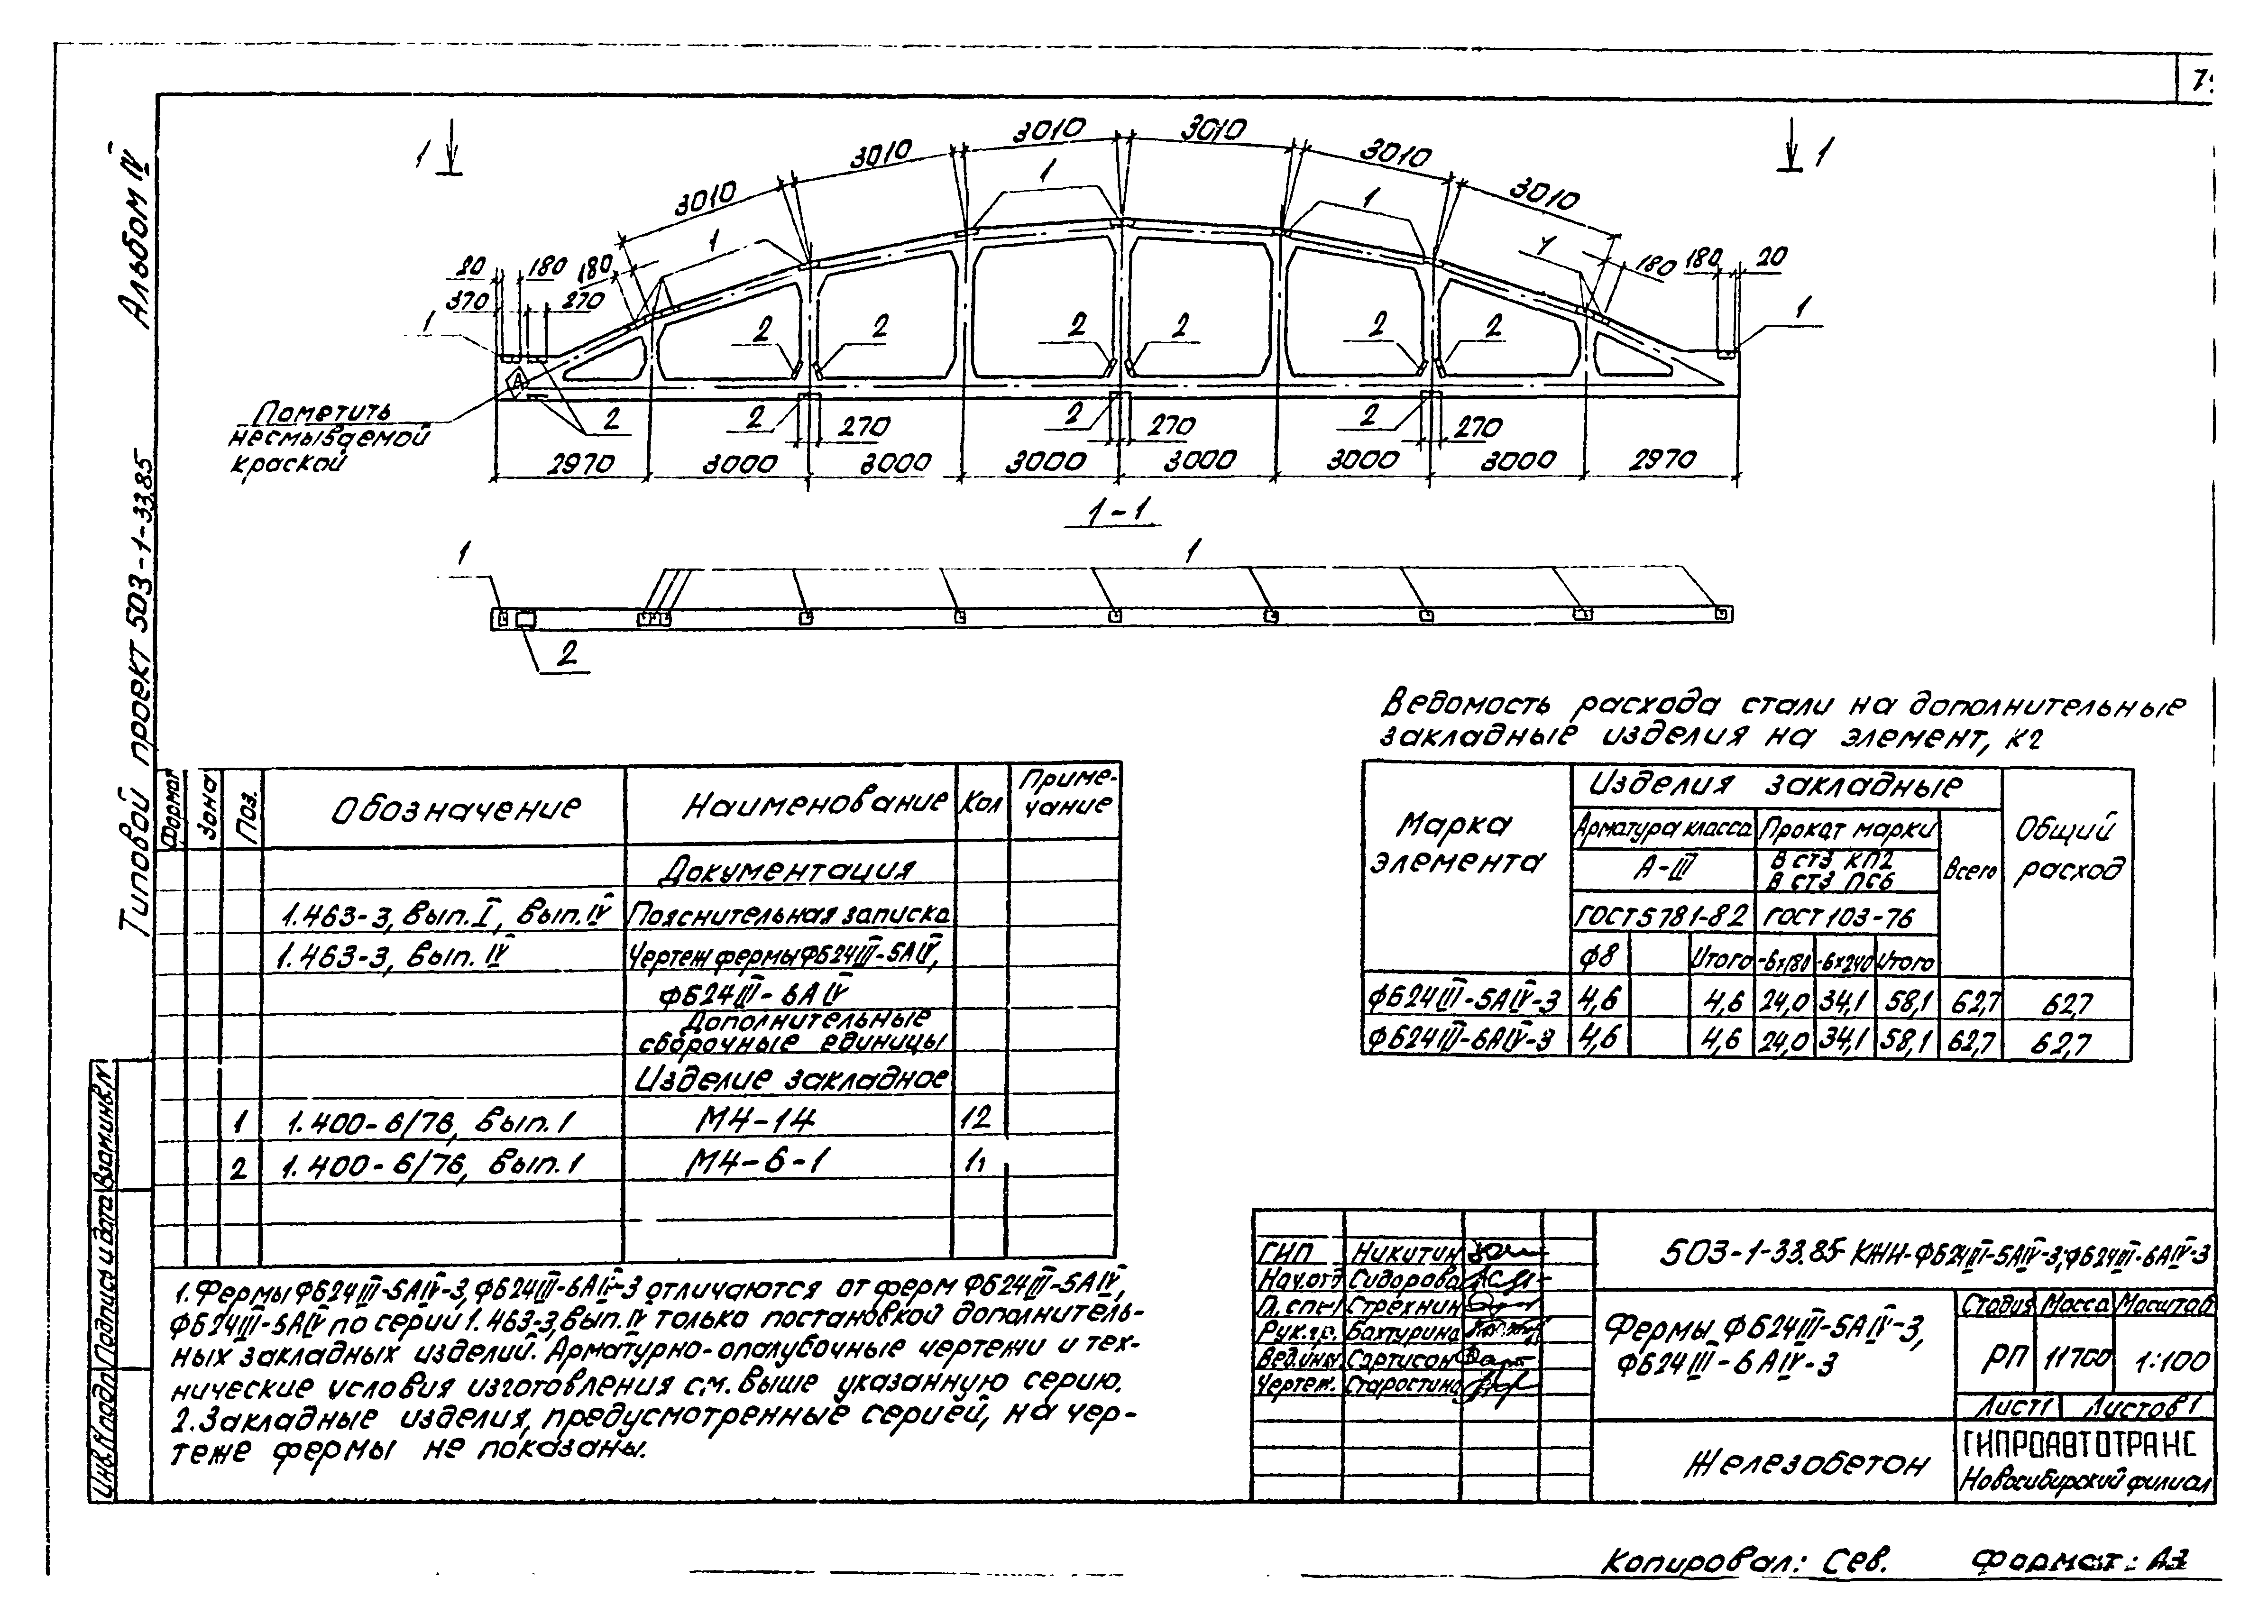 Альбом IV
Типовой проект 503-1-33.85
1
1
3010
3010
3010
3010
3010
3010
1
1
1
20
180
180
370
270
1
180
180
20
1
2
2
2
2
2
2
А
Пометить
несмываемой
краской
2
2
270
2
270
2
270
2970
3000
3000
3000
3000
3000
3000
2970
1-1
1
1
2
Ведомость расхода стали на дополнительные
закладные изделия на элемент, кг
Марка элемента
Изделия закладные
Общий расход
Арматура класса
Прокат марки
Всего
А-III
В ст3 кп2
В ст3 пс6
ГОСТ 5781-82
ГОСТ 103-76
ф8
Итого
-6х180
-6х240
Итого
ФБ24III-5АIV-3 4,6 4,6 24,0 34,1 58,1 62,7 62,7
ФБ24III-6АIV-3 4,6 4,6 24,0 34,1 58,1 62,7 62,7
Формат Зона Поз. Обозначение Наименование Кол Приме-
чание
Документация
1.463-3, вып. I, вып. IV Пояснительная записка
1.463-3, вып. IV Чертеж фермы ФБ24III-5АIV,
ФБ24III-6АIV
Дополнительные
сборочные единицы
Изделие закладное
1 1.400-6/76, вып. 1 М4-14 12
2 1.400-6/76, вып. 1 М4-6-1 11
1. Фермы ФБ24III-5АIV-3, ФБ24III-6АIV-3 отличаются от ферм ФБ24III-5АIV,
ФБ24III-5АIV по серии 1.463-3, вып. IV только постановкой дополнитель-
ных закладных изделий. Арматурно-опалубочные чертежи и тех-
нические условия изготовления см. выше указанную серию.
2. Закладные изделия, предусмотренные серией, на чер-
теже фермы не показаны.
Взам.инв.N
Подпись и дата
Инв.N подп
ГИП Никитин
Нач.отд Сидорова
Гл. спец Стрехнин
Рук.гр. Бахтурина
Вед.инж Сартисон
Чертеж. Старостина
503-1-33.85 КЖН-ФБ24III-5АIV-3; ФБ24III-6АIV-3
Фермы ФБ24III-5АIV-3,
ФБ24III-6АIV-3
Стадия Масса Масштаб
РП 11700 1:100
Лист 1 Листов 1
Железобетон
ГИПРОАВТОТРАНС
Новосибирский филиал
Копировал: Сев. Формат: А3